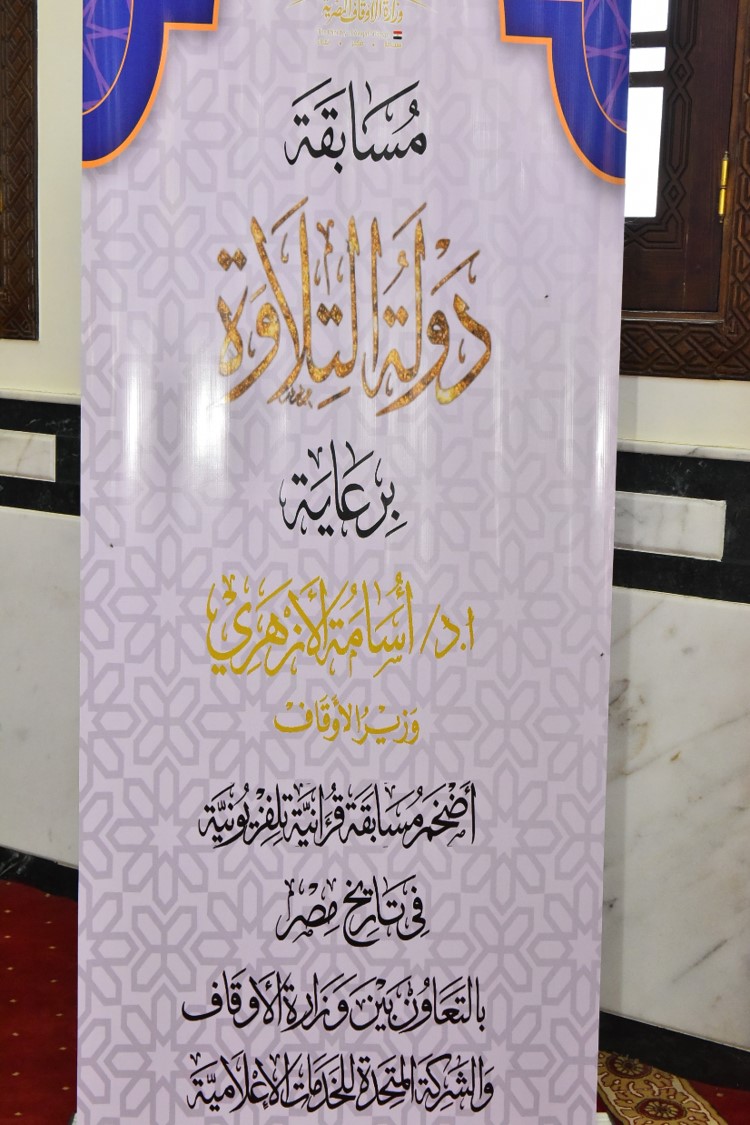 وزارة الأوقاف المصرية
مُسَابَقَة
دَوْلَةُ التِّلَاوَة
بِرِعَايَة
ا.د/ أُسَامَة الأَزْهَرِي
وَزِيرُ الأَوْقَاف
أَضْخَم مُسَابَقَة قُرْآنِيَّة تِلِفِزْيُونِيَّة
فِي تَارِيخ مِصْر
بالتَعَاوُن بَيْنَ وَزَارَة الأَوقَاف
وَالشَرِكَة المُتَّحِدَة للخَدَمَات الإعْلَامِيَّة